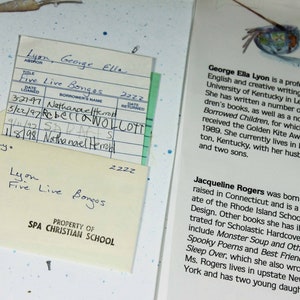 Lyon, George Ella
AUTHOR
TITLE
Five Live Bongos 2222
DATE
BORROWER'S NAME
3-27-97 Nathanael Herrod
5/22/97 Rebecca Wollcott
1/8/98 Nathanael Herrod
2222
Lyon
Five Live Bongos
PROPERTY OF
SPA CHRISTIAN SCHOOL
George Ella Lyon is a profe
English and creative writing
University of Kentucky in L
She has written a number
dren's books, as well as a no
Borrowed Children, for whic
received the Golden Kite Aw
1989. She currently lives in
ton, Kentucky, with her husb
and two sons.
Jacqueline Rogers was born
raised in Connecticut and is a
ate of the Rhode Island Schoo
Design. Other books she has ill
trated for Scholastic Hardcove
include Monster Soup and Othe
Spooky Poems and Best Friend
Sleep Over, which she also wro
Ms. Rogers lives in upstate New
York and has two young daugh